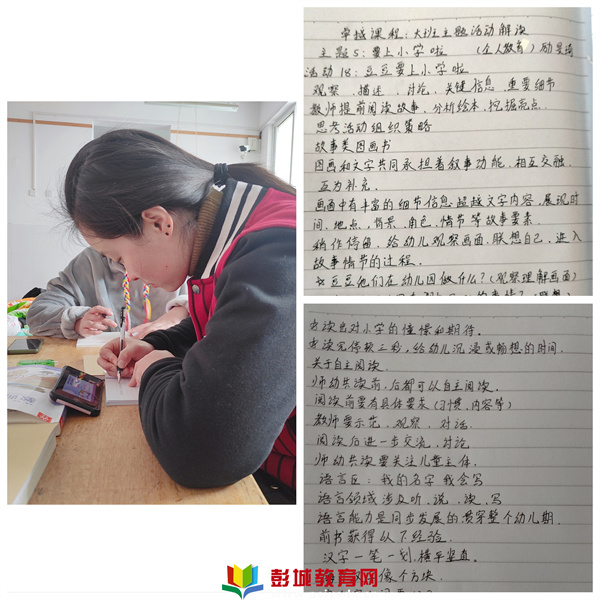 卓越课程：大班主题活动解读
主题5：要上小学啦 （全人教育）励昱琦
活动18：豆豆要上小学啦
观察、描述、讨论、关键信息、重要细节
教师提前阅读故事、分析绘本、挖掘亮点.
思考活动组织策略
故事类图画书
图画和文字共同承担着叙事功能，相互交融，
互为补充.
画面中有丰富的细节信息，超越文字内容，展现时
间、地点、背景、角色、情节等故事要素.
稍作停留，给幼儿观察画面，联想自己，进入
故事情节的过程.
☆豆豆他们在幼儿园做什么？（观察理解画面）
☆读出对小学的憧憬和期待.
☆读完停软三秒，给幼儿沉浸或畅想的时间.
关于自主阅读.
师幼共读前、后都可以自主阅读.
阅读前要有具体要求（习惯、内容等）
教师要示范、观察、对话.
阅读后进一步交流，讨论
师幼共读要关注儿童主体.
语言区：我的名字我会写
语言领域涉及听、说、读、写
语言能力是同步发展的，贯穿整个幼儿期.
前书获得以下经验.
汉字一笔一划，横平竖直.
像个方块.
彭城教育网